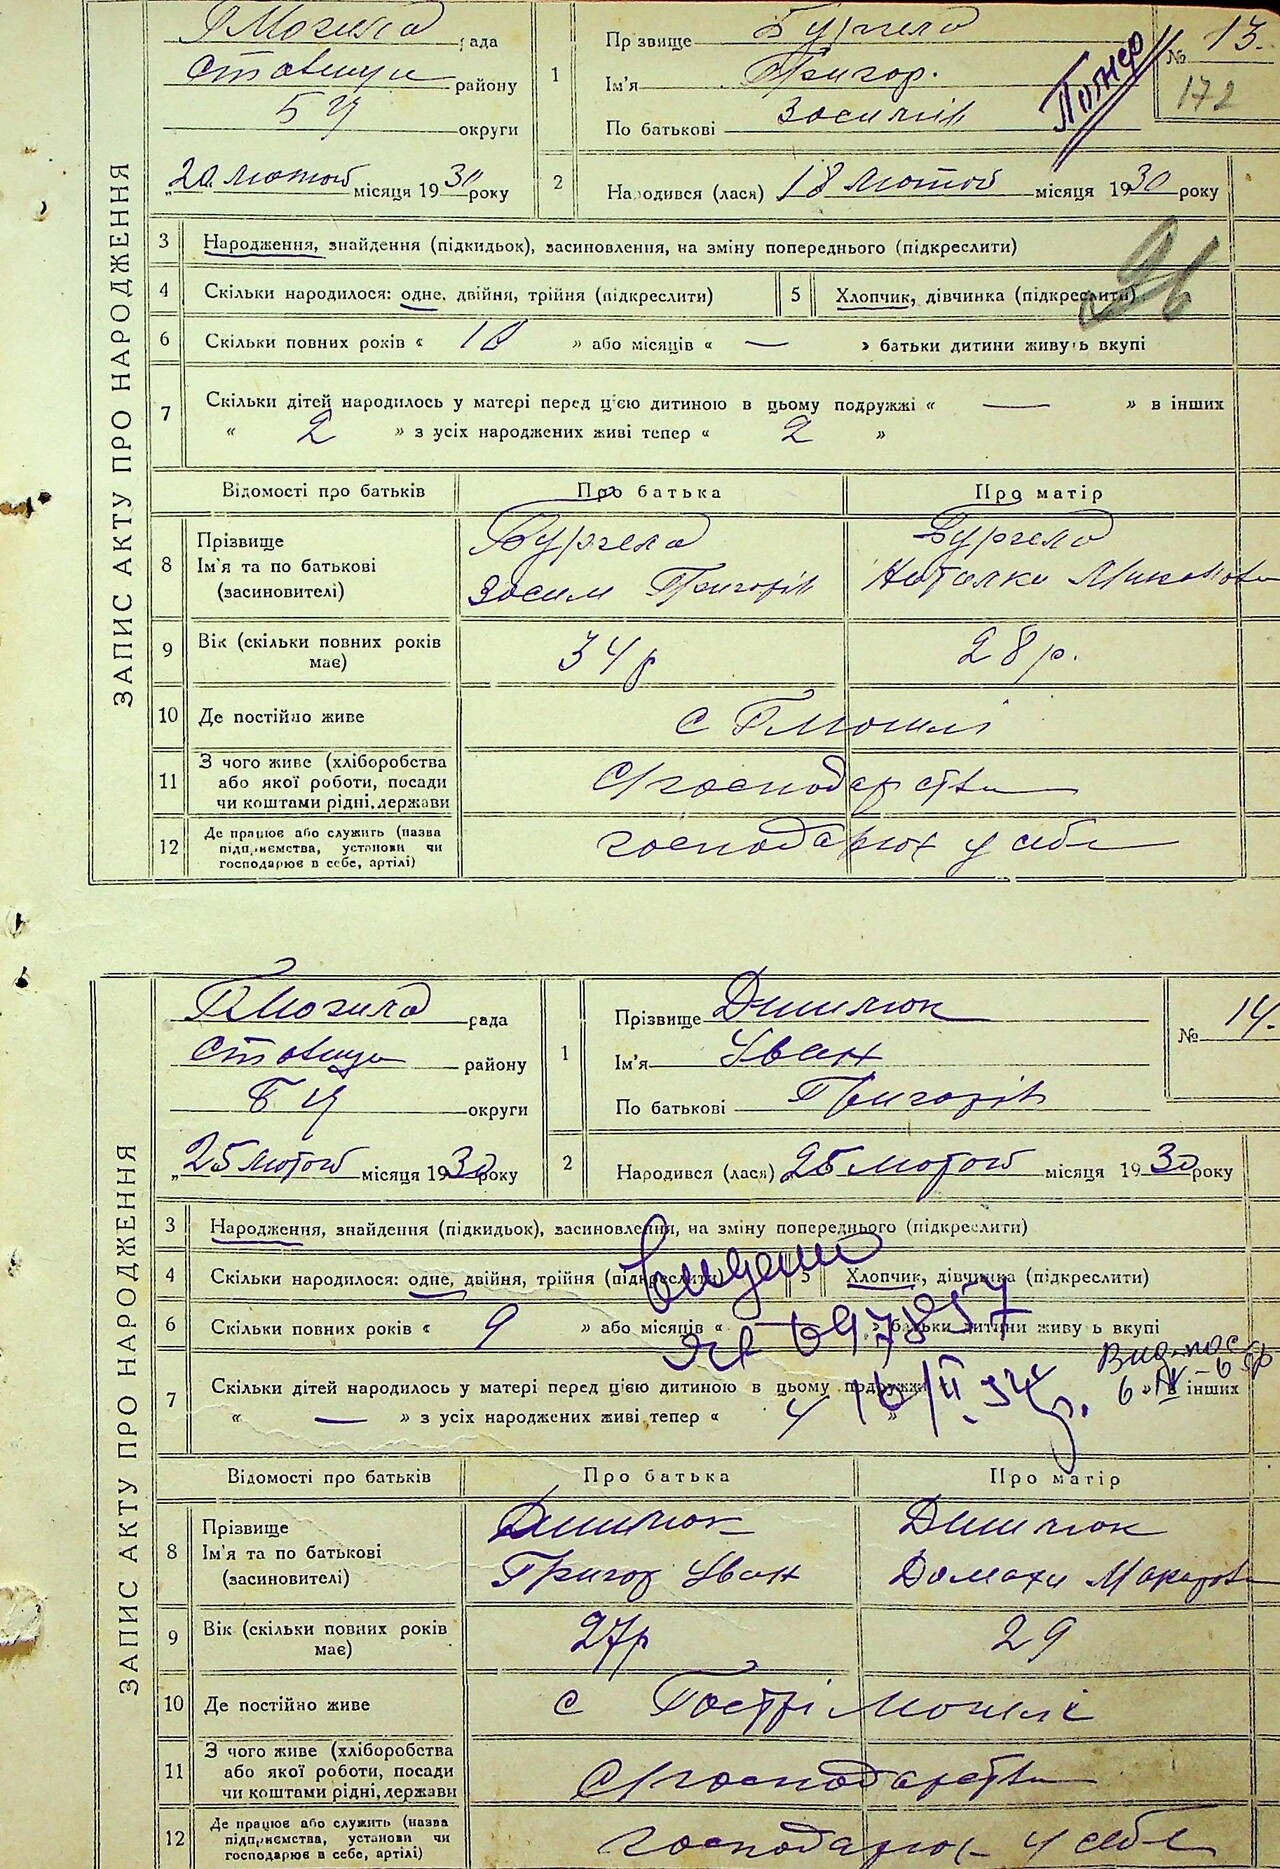 ЗАПИС АКТУ ПРО НАРОДЖЕННЯ
ГМогила рада
Ставище району
БЦ округи
„20 лютого місяця 1930 року
1 Прізвище
Ім'я Григор.
По батькові Зосимів
Помер
№ 13.
172
2 Народився (лася) 18 лютого місяця 1930 року
3 Народження, знайдення (підкидьок), засиновлення, на зміну попереднього (підкреслити)
4 Скільки народилося: одне, двійня, трійня (підкреслити) 5 Хлопчик, дівчинка (підкреслити)
6 Скільки повних років « 10 » або місяців « — » батьки дитини живуть вкупі
7 Скільки дітей народилось у матері перед ц'єю дитиною в цьому подружжі « — » в інших
« 2 » з усіх народжених живі тепер « 2 »
Відомості про батьків Про батька Про матір
8 Прізвище
Ім'я та по батькові Зосим Григорів Наталка
(засиновителі)
9 Вік (скільки повних років має) 34 р 28 р.
10 Де постійно живе с ГМогилі
11 З чого живе (хліборобства або якої роботи, посади чи коштами рідні, держави С/господарства
12 Де працює або служить (назва підприємства, установи чи господарює в себе, артілі) господарює у себе
ЗАПИС АКТУ ПРО НАРОДЖЕННЯ
ГМогила рада
Ставище району
БЦ округи
„25 лютого місяця 1930 року
1 Прізвище
Ім'я Іван
По батькові Григорів
№ 14.
2 Народився (лася) 25 лютого місяця 1930 року
3 Народження, знайдення (підкидьок), засиновлення, на зміну попереднього (підкреслити)
4 Скільки народилося: одне, двійня, трійня (підкреслити) 5 Хлопчик, дівчинка (підкреслити)
6 Скільки повних років « 9 » або місяців « — » батьки дитини живу ь вкупі
7 Скільки дітей народилось у матері перед ц'єю дитиною в цьому подружжі в інших
« — » з усіх народжених живі тепер « 4
Відомості про батьків Про батька Про матір
8 Прізвище
Ім'я та по батькові Григор Іван Домаха Макарова
(засиновителі)
9 Вік (скільки повних років має) 27 р 29
10 Де постійно живе с Гострі Могилі
11 З чого живе (хліборобства або якої роботи, посади чи коштами рідні, держави С/господарства
12 Де працює або служить (назва підприємства, установи чи господарює в себе, артілі) господарює у себе